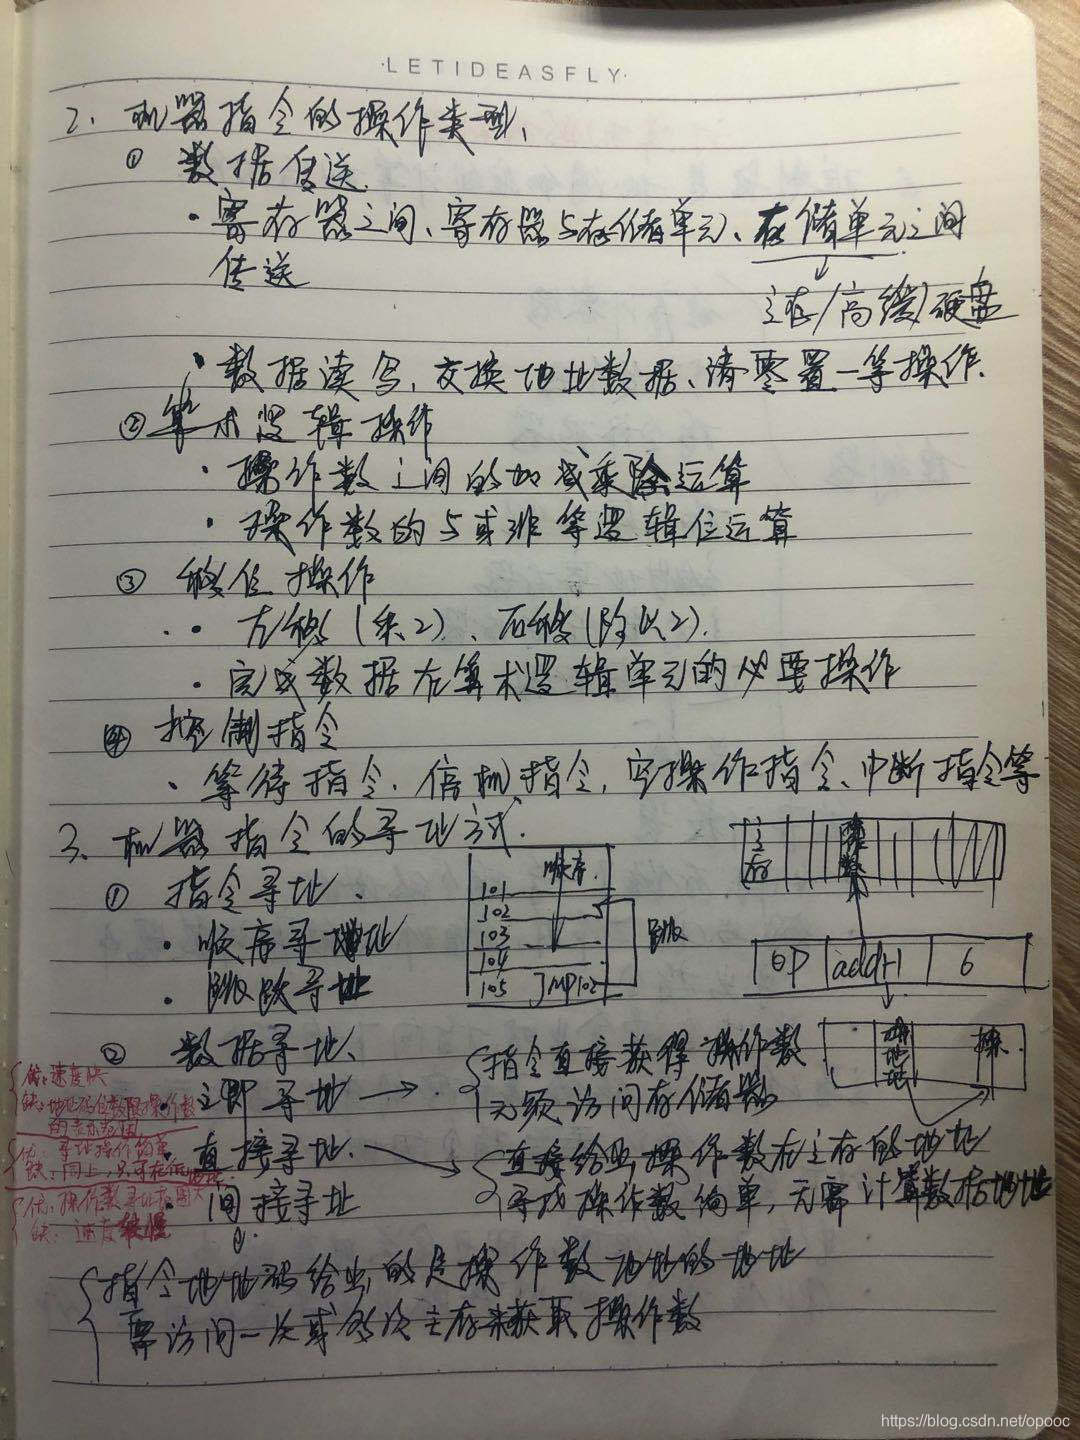 ·LETIDEASFLY·
2、机器指令的操作类型、
① 数据传送
· 寄存器之间、寄存器与存储单元、存储单元之间
传送
主存/高缓/硬盘
· 数据读写、交换地址数据、清零置一等操作.
② 算术逻辑操作
· 操作数之间的加减乘除运算
· 操作数的与或非等逻辑位运算
③ 移位操作
· 左移(乘2)、右移(除以2).
· 完成数据在算术逻辑单元的必要操作
④ 控制指令
· 等待指令、停机指令、空操作指令、中断指令等
3、机器指令的寻址方式.
① 指令寻址.
· 顺序寻址
· 跳跃寻址
顺序.
101
102
103
104
105 JMP102
跳跃
主存
OP addr1 6
② 数据寻址、
· 立即寻址 → 指令直接获得操作数
无须访问存储器
· 直接寻址. → 直接给出操作数在主存的地址
寻找操作数简单，无需计算数据地址
· 间接寻址
优:速度快
缺:地址码位数限操作数
的表示范围
优:寻址操作简单
缺:同上，
优:操作数寻址范围大
缺:速度较慢
指令地址码给出的是操作数地址的地址
需访问一次或多次主存来获取操作数
https://blog.csdn.net/opooc